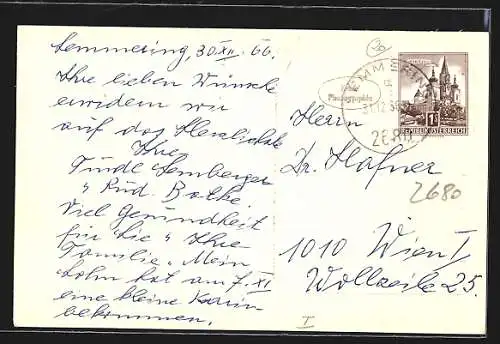 Semmering, 30 XII. 66.
Ihre lieben Wünsche
erwidern wir
auf das Herzlichste
Ihre
Tindl Semberger
u Rud. Bathe.
Viel Gesundheit
für Sie u Ihre
Familie. Mein
Sohn hat am 7. XI
eine kleine Karin
bekommen.
SEMMERING
31.12.66
2680
REPUBLIK ÖSTERREICH
Herrn
Dr. Hafner
2680
1010 Wien I
Wollzeile 25.
I